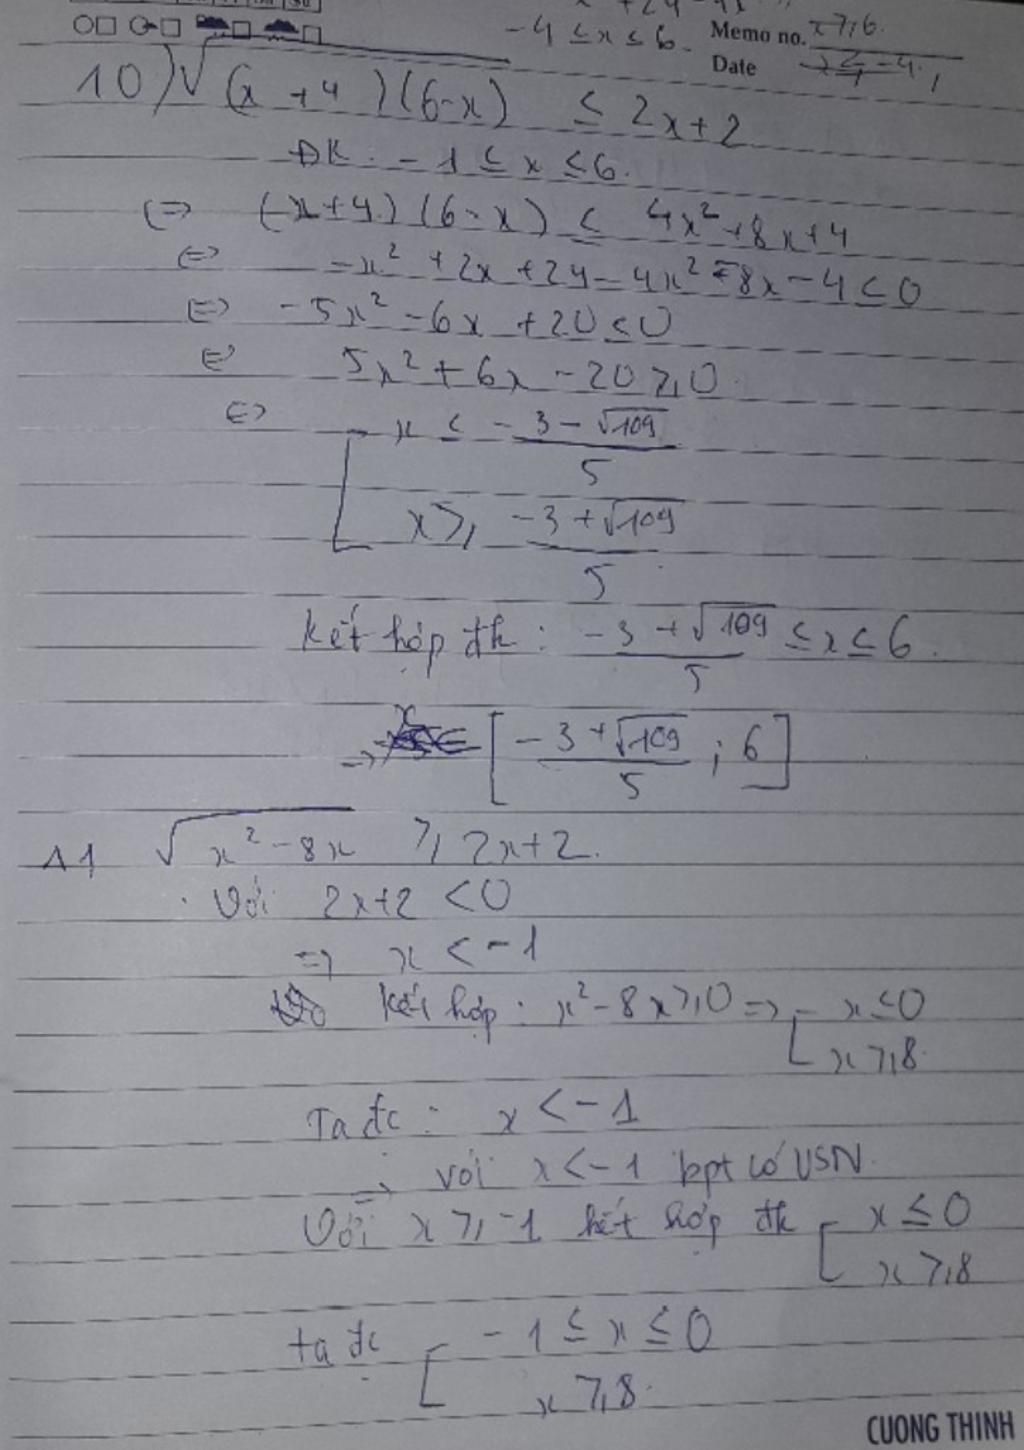 -4 ≤ x ≤ 6. Memo no. x ≥ 6.
Date x ≤ -4.
10) √(x+4)(6-x) ≤ 2x+2
ĐK. -1 ≤ x ≤ 6.
⇔ (x+4)(6-x) ≤ 4x²+8x+4
⇔ -x²+2x+24-4x²-8x-4 ≤ 0
⇔ -5x²-6x+20 ≤ 0
⇔ 5x²+6x-20 ≥ 0.
⇔ [ x ≤ (-3-√109)/5
x ≥ (-3+√109)/5
Kết hợp đk: (-3+√109)/5 ≤ x ≤ 6.
→ x [ (-3+√109)/5 ; 6 ]
11 √x²-8x ≥ 2x+2.
Với 2x+2 < 0
⇒ x < -1
Kết hợp: x²-8x ≥ 0 ⇒ [ x ≤ 0
x ≥ 8.
Ta đc: x < -1
⇒ với x < -1 bpt có VSN.
Với x ≥ -1 kết hợp đk [ x ≤ 0
x ≥ 8
ta đc [ -1 ≤ x ≤ 0
x ≥ 8.
CUONG THINH